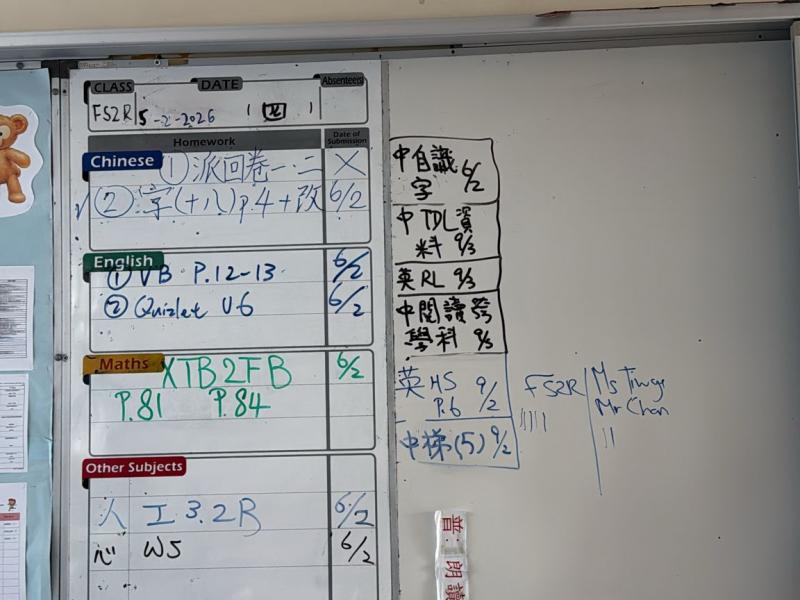 CLASS DATE Absentees
FS2R 5-2-2026 ( 四 )
Homework Date of Submission
Chinese ① 派回卷一、二 X
√② 字(十八)p.4+改 6/2
English
① VB P.12-13 6/2
② Quizlet U6 6/2
Maths XTB2FB 6/2
P.81 P.84
Other Subjects
人 工3.2B 6/2
心 W5 6/2
中自識
字 6/2
中TDL資
料 9/3
英RL 9/3
中閱讀跨
學科 9/3
英HS 9/2
P.6
中梯(5) 9/2
FS2R
Mr Chan
普·朗讀